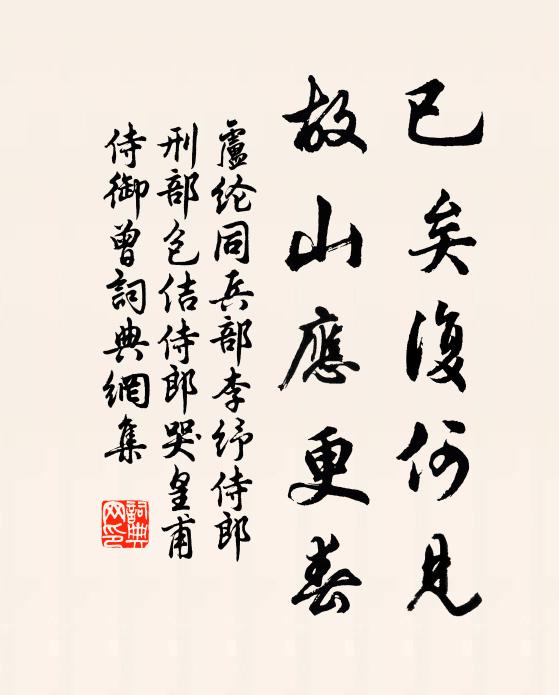 已矣復何見
故山應更春
盧纶同兵部李纾侍郎
刑部包佶侍郎哭皇甫
侍御曾詞典網集
詞典
网印